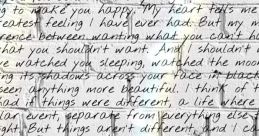 ng to make you happy. My heart tells me
reatest feeling I have ever had. But my m
rence between wanting what you can't h
hat you shouldn't want. And I shouldn't
ve watched you sleeping, watched the moon
ing its shadows across your face in black
seen anything more beautiful. I think of t
had things were different, a life where
lar event, separate from everything else
ght. But things aren't different, and I cu